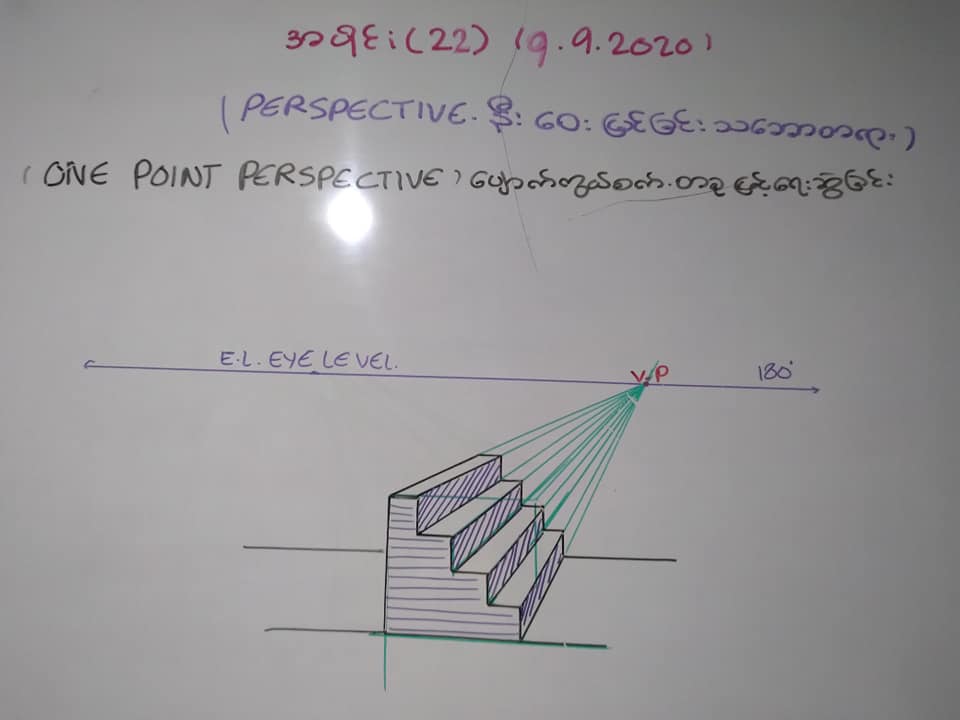 အရှင်း (22) (9.9.2020)
(PERSPECTIVE. နီး ဝေး မြင်ခြင်း သဘောတရား)
(ONE POINT PERSPECTIVE) ပျောက်ကွယ်စက်. တခု ဖြင့်ရေးဆွဲခြင်း
E.L. EYE LEVEL. V.P 180°